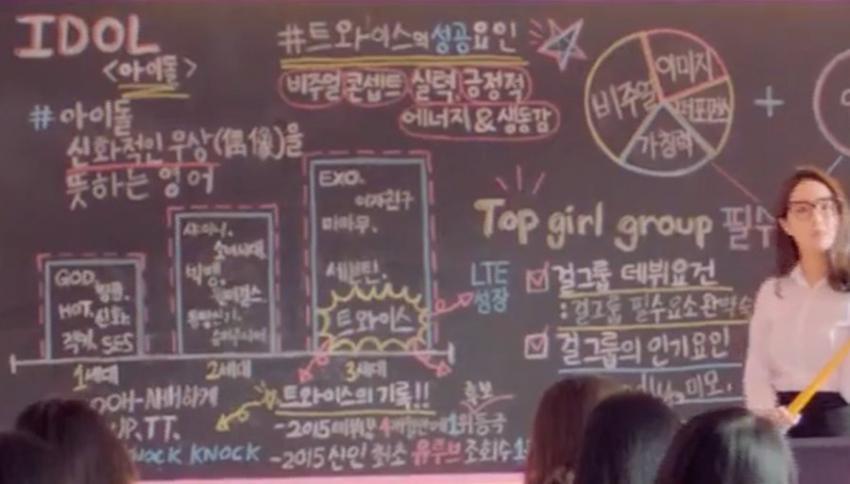 IDOL
<아이돌>
# 아이돌
신화적인 우상(偶像)을
뜻하는 영어
#트와이스의 성공요인
비주얼 콘셉트 실력 긍정적
에너지 & 생동감
비주얼
이미지
퍼포먼스
가창력
+
GOD
HOT. 신화
젝키. SES
1세대
샤이니.
소녀시대
빅뱅.
원더걸스.
동방신기.
슈퍼주니어
2세대
EXO.
여자친구
마마무.
세븐틴.
트와이스
3세대
LTE
성장
Top girl group 필수
걸그룹 데뷔요건
:걸그룹 필수요소완벽
걸그룹의 인기요인
미모.
OOH-AHH하게
TT.
KNOCK KNOCK
트와이스의 기록!!
-2015데뷔
-2015 신인 최소 유튜브 조회수